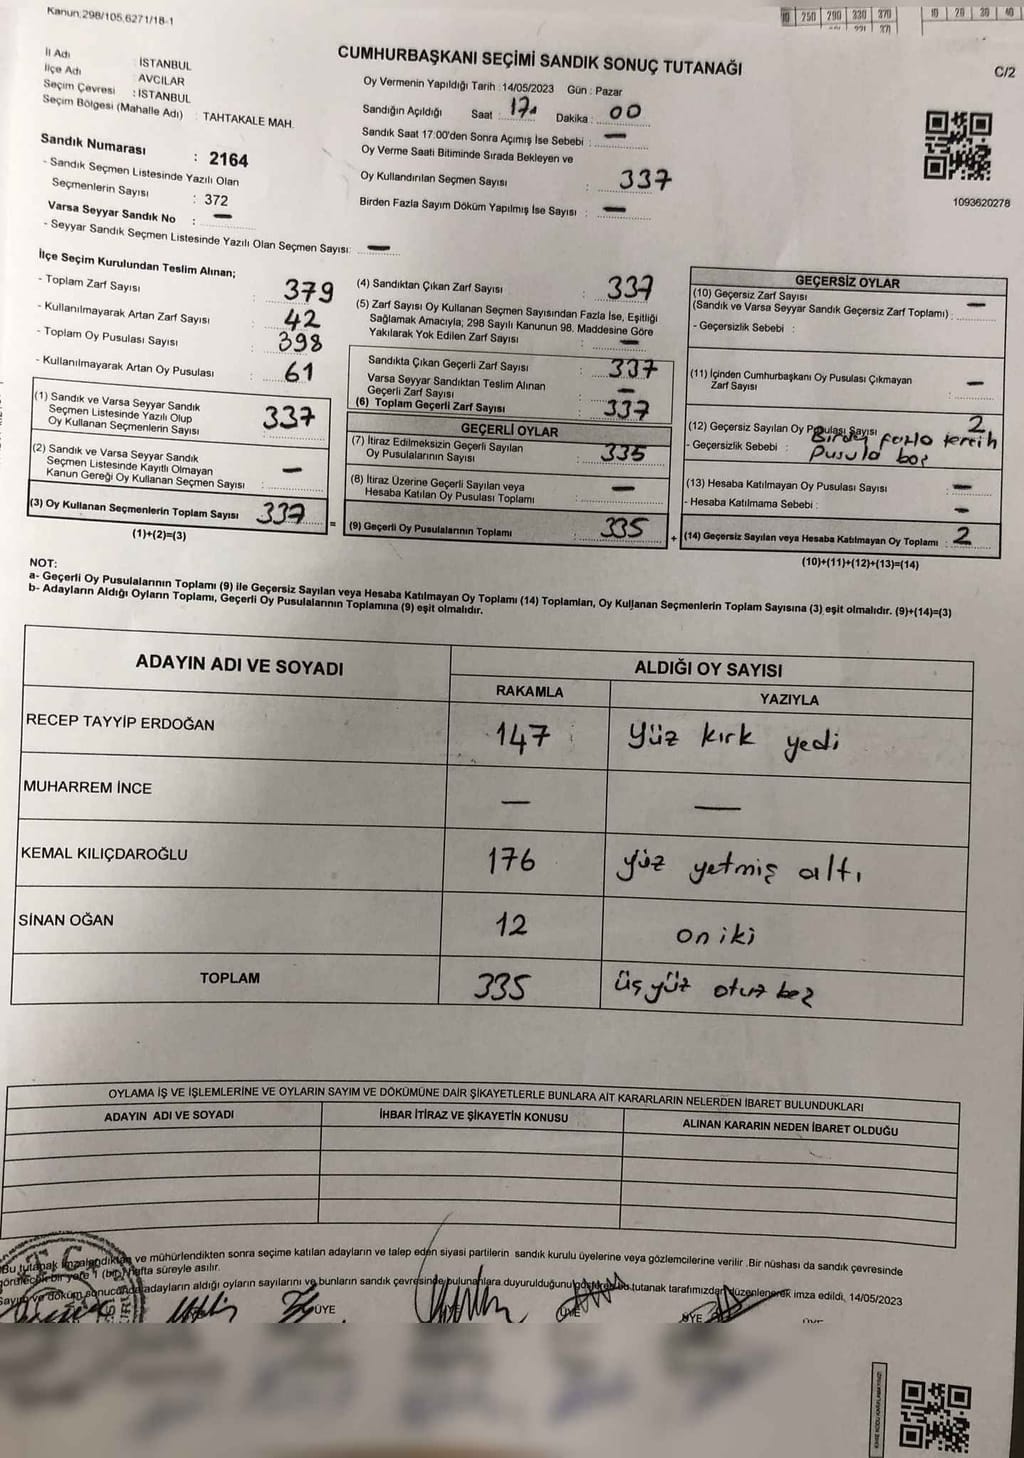 Kanun:298/105,6271/18-1
10 250 290 330 370
10 20 30 40
CUMHURBAŞKANI SEÇİMİ SANDIK SONUÇ TUTANAĞI
C/2
İl Adı : İSTANBUL
İlçe Adı : AVCILAR
Seçim Çevresi : İSTANBUL
Seçim Bölgesi (Mahalle Adı) : TAHTAKALE MAH.
Oy Vermenin Yapıldığı Tarih :14/05/2023 Gün : Pazar
Sandığın Açıldığı Saat : 17 Dakika : 00
Sandık Saat 17:00'den Sonra Açımış İse Sebebi : —
Oy Verme Saati Bitiminde Sırada Bekleyen ve
Oy Kullandırılan Seçmen Sayısı : 337
Birden Fazla Sayım Döküm Yapılmış İse Sayısı : —
1093620278
Sandık Numarası : 2164
- Sandık Seçmen Listesinde Yazılı Olan
Seçmenlerin Sayısı : 372
Varsa Seyyar Sandık No : —
- Seyyar Sandık Seçmen Listesinde Yazılı Olan Seçmen Sayısı: —
İlçe Seçim Kurulundan Teslim Alınan;
- Toplam Zarf Sayısı : 379
- Kullanılmayarak Artan Zarf Sayısı : 42
- Toplam Oy Pusulası Sayısı : 398
- Kullanılmayarak Artan Oy Pusulası : 61
(1) Sandık ve Varsa Seyyar Sandık
Seçmen Listesinde Yazılı Olup
Oy Kullanan Seçmenlerin Sayısı : 337
(2) Sandık ve Varsa Seyyar Sandık
Seçmen Listesinde Kayıtlı Olmayan
Kanun Gereği Oy Kullanan Seçmen Sayısı : —
(3) Oy Kullanan Seçmenlerin Toplam Sayısı 337 =
(1)+(2)=(3)
(4) Sandıktan Çıkan Zarf Sayısı : 337
(5) Zarf Sayısı Oy Kullanan Seçmen Sayısından Fazla İse, Eşitliği
Sağlamak Amacıyla, 298 Sayılı Kanunun 98. Maddesine Göre
Yakılarak Yok Edilen Zarf Sayısı : —
Sandıkta Çıkan Geçerli Zarf Sayısı : 337
Varsa Seyyar Sandıktan Teslim Alınan
Geçerli Zarf Sayısı : —
(6) Toplam Geçerli Zarf Sayısı : 337
GEÇERLİ OYLAR
(7) İtiraz Edilmeksizin Geçerli Sayılan
Oy Pusulalarının Sayısı : 335
(8) İtiraz Üzerine Geçerli Sayılan veya
Hesaba Katılan Oy Pusulası Toplamı : —
(9) Geçerli Oy Pusulalarının Toplamı : 335 +
GEÇERSİZ OYLAR
(10) Geçersiz Zarf Sayısı
(Sandık ve Varsa Seyyar Sandık Geçersiz Zarf Toplamı) : —
- Geçersizlik Sebebi :
(11) İçinden Cumhurbaşkanı Oy Pusulası Çıkmayan
Zarf Sayısı : —
(12) Geçersiz Sayılan Oy Pusulası Sayısı : 2
- Geçersizlik Sebebi : Birden fazla tercih
Pusula boş
(13) Hesaba Katılmayan Oy Pusulası Sayısı : —
- Hesaba Katılmama Sebebi : —
(14) Geçersiz Sayılan veya Hesaba Katılmayan Oy Toplamı : 2
(10)+(11)+(12)+(13)=(14)
NOT:
a- Geçerli Oy Pusulalarının Toplamı (9) ile Geçersiz Sayılan veya Hesaba Katılmayan Oy Toplamı (14) Toplamları, Oy Kullanan Seçmenlerin Toplam Sayısına (3) eşit olmalıdır. (9)+(14)=(3)
b- Adayların Aldığı Oyların Toplamı, Geçerli Oy Pusulalarının Toplamına (9) eşit olmalıdır.
ADAYIN ADI VE SOYADI
ALDIĞI OY SAYISI
RAKAMLA YAZIYLA
RECEP TAYYİP ERDOĞAN 147 Yüz kırk yedi
MUHARREM İNCE — —
KEMAL KILIÇDAROĞLU 176 yüz yetmiş altı
SİNAN OĞAN 12 on iki
TOPLAM 335 üçyüz otuz beş
OYLAMA İŞ VE İŞLEMLERİNE VE OYLARIN SAYIM VE DÖKÜMÜNE DAİR ŞİKAYETLERLE BUNLARA AİT KARARLARIN NELERDEN İBARET BULUNDUKLARI
ADAYIN ADI VE SOYADI İHBAR İTİRAZ VE ŞİKAYETİN KONUSU ALINAN KARARIN NEDEN İBARET OLDUĞU
Bu tutanak imzalandıktan ve mühürlendikten sonra seçime katılan adayların ve talep eden siyasi partilerin sandık kurulu üyelerine veya gözlemcilerine verilir .Bir nüshası da sandık çevresinde
görülecek bir yere 1 (bir) hafta süreyle asılır.
Sayım ve döküm sonucunda adayların aldığı oyların sayılarını ve bunların sandık çevresinde bulunanlara duyurulduğunu gösteren bu tutanak tarafımızdan düzenlenerek imza edildi, 14/05/2023
T.C.
ÜYE ÜYE ÜYE